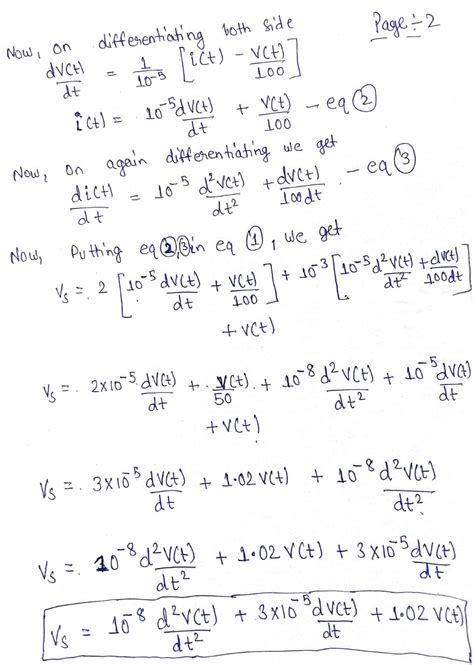 Page:-2
Now, on differentiating both side
dV(t)/dt = 1/10^-5 [i(t) - V(t)/100]
i(t) = 10^-5 dV(t)/dt + V(t)/100 - eq ②
Now, on again differentiating we get
di(t)/dt = 10^-5 d²V(t)/dt² + dV(t)/100dt - eq ③
Now, Putting eq ②,③ in eq ①, we get
Vs = 2 [10^-5 dV(t)/dt + V(t)/100] + 10^-3 [10^-5 d²V(t)/dt² + dV(t)/100dt]
+ V(t)
Vs = 2×10^-5 dV(t)/dt + V(t)/50 + 10^-8 d²V(t)/dt² + 10^-5 dV(t)/dt
+ V(t)
Vs = 3×10^-5 dV(t)/dt + 1.02 V(t) + 10^-8 d²V(t)/dt²
Vs = 10^-8 d²V(t)/dt² + 1.02 V(t) + 3×10^-5 dV(t)/dt
Vs = 10^-8 d²V(t)/dt² + 3×10^-5 dV(t)/dt + 1.02 V(t)